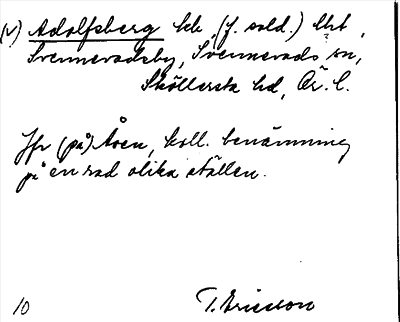 (v) Adolfsberg lht (f. sold.) lht,
Svennevadsby, Svennevads sn,
Sköllersta hd, Ör. l.
Jfr (på) Åsen, koll. benämning
på en rad olika ställen.
10 T. Ericsson